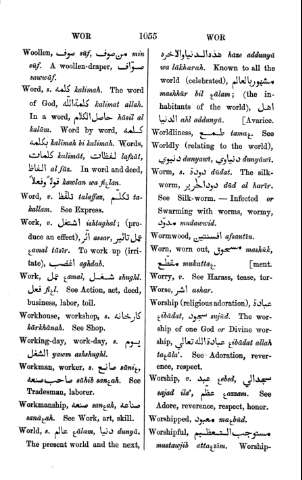 WOR 1055 WOR
Woollen, صوف sūf, من صوف min
صوف. A woollen-draper, صواف
sawwāf.
Word, s. كلمة kalimah. The word
of God, كلمة الله kalimat allah.
In a word, حاصل الكلام hāsil al
kalām. Word by word, كلمة
بكلمة kalimah bi kalimah. Words,
كلمات kalimāt, لفظات lafzāt,
الفاظ al fāz. In word and deed,
قولا وفعلا kawlan wa
Word, v. تلفظ talaffaz, تكلم ta-
kallam. See Express.
Work, v. اشتغل ishtaghal; (pro-
duce an effect), اثر assar, عمل تاثير
tāsīr. To work up (irri-
tate), اغضب aghdab.
Work, عمل شغل shughl.
فعل See Action, act, deed,
business, labor, toil.
Workhouse, workshop, s. كارخانه
kārkhānah. See Shop.
Working-day, work-day, s. يوم
الشغل yawm ashshughl.
Workman, worker, s. صانع
صاحب صنعة sāhib See
Tradesman, laborer.
Workmanship, صنعة صناعة
See Work, art, skill.
World, s. عالم دنيا dunyā.
The present world and the next,
هذه الدنيا والاخرة haze addunyā
wa lākharah. Known to all the
world (celebrated), مشهور بالعالم
mashhūr bil (the in-
habitants of the world), اهل
الدنيا ahl addunyā. [Avarice.
Worldliness, طمع See
Worldly (relating to the world),
دنيوي danyawī, دنياوي dunyāwī.
Worm, s. دودة dūdat. The silk-
worm, دود الحرير dūd al harīr.
See Silk-worm. — Infected or
Swarming with worms, wormy,
مدود mudawwid.
Wormwood, افسنتين afsantīn.
Worn, worn out, مسحوق mashūk,
مقطع [ment.
Worry, v. See Harass, tease, tor-
Worse, اشر ashar.
Worship (religious adoration), عبادة
سجود sajūd. The wor-
ship of one God or Divine wor-
ship, عبادة الله تعالى allah
See Adoration, rever-
ence, respect.
Worship, v. عبد سجد الى
sajad ila', عظم See
Adore, reverence, respect, honor.
Worshipped, معبود
Worshipful, مستوجب التعظيم
mustawjib